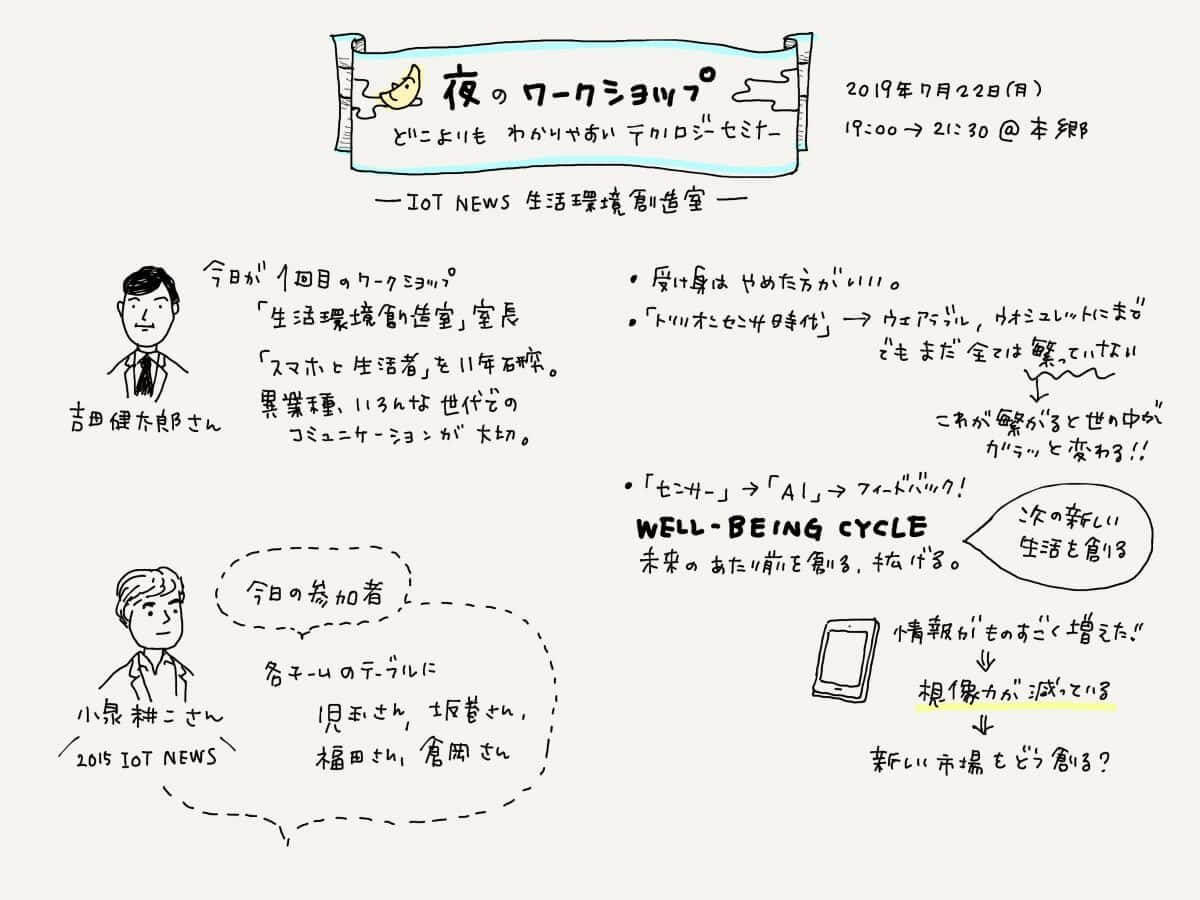 夜のワークショップ
どこよりも わかりやすい テクノロジーセミナー
2019年7月22日(月)
19:00→21:30@本郷
—IOT NEWS 生活環境創造室—
今日が 1回目のワークショップ
「生活環境創造室」室長
「スマホと生活者」を11年研究。
異業種、いろんな世代での
コミュニケーションが大切。
吉田健太郎さん
・受け身はやめた方がいい。
・「トリリオンセンサ時代」→ウェアラブル,ウオシュレットにまで
でもまだ全ては繋っていない
これが繋がると世の中が
ガラッと変わる!!
・「センサー」→「AI」→フィードバック!
WELL-BEING CYCLE
未来のあたり前を創る,拡げる。
次の新しい
生活を創る
今日の参加者
各チームのテーブルに
児玉さん, 坂巻さん,
福田さん, 倉岡さん
小泉耕二さん
2015 IOT NEWS
情報がものすごく増えた!!
想像力が減っている
新しい市場をどう創る?